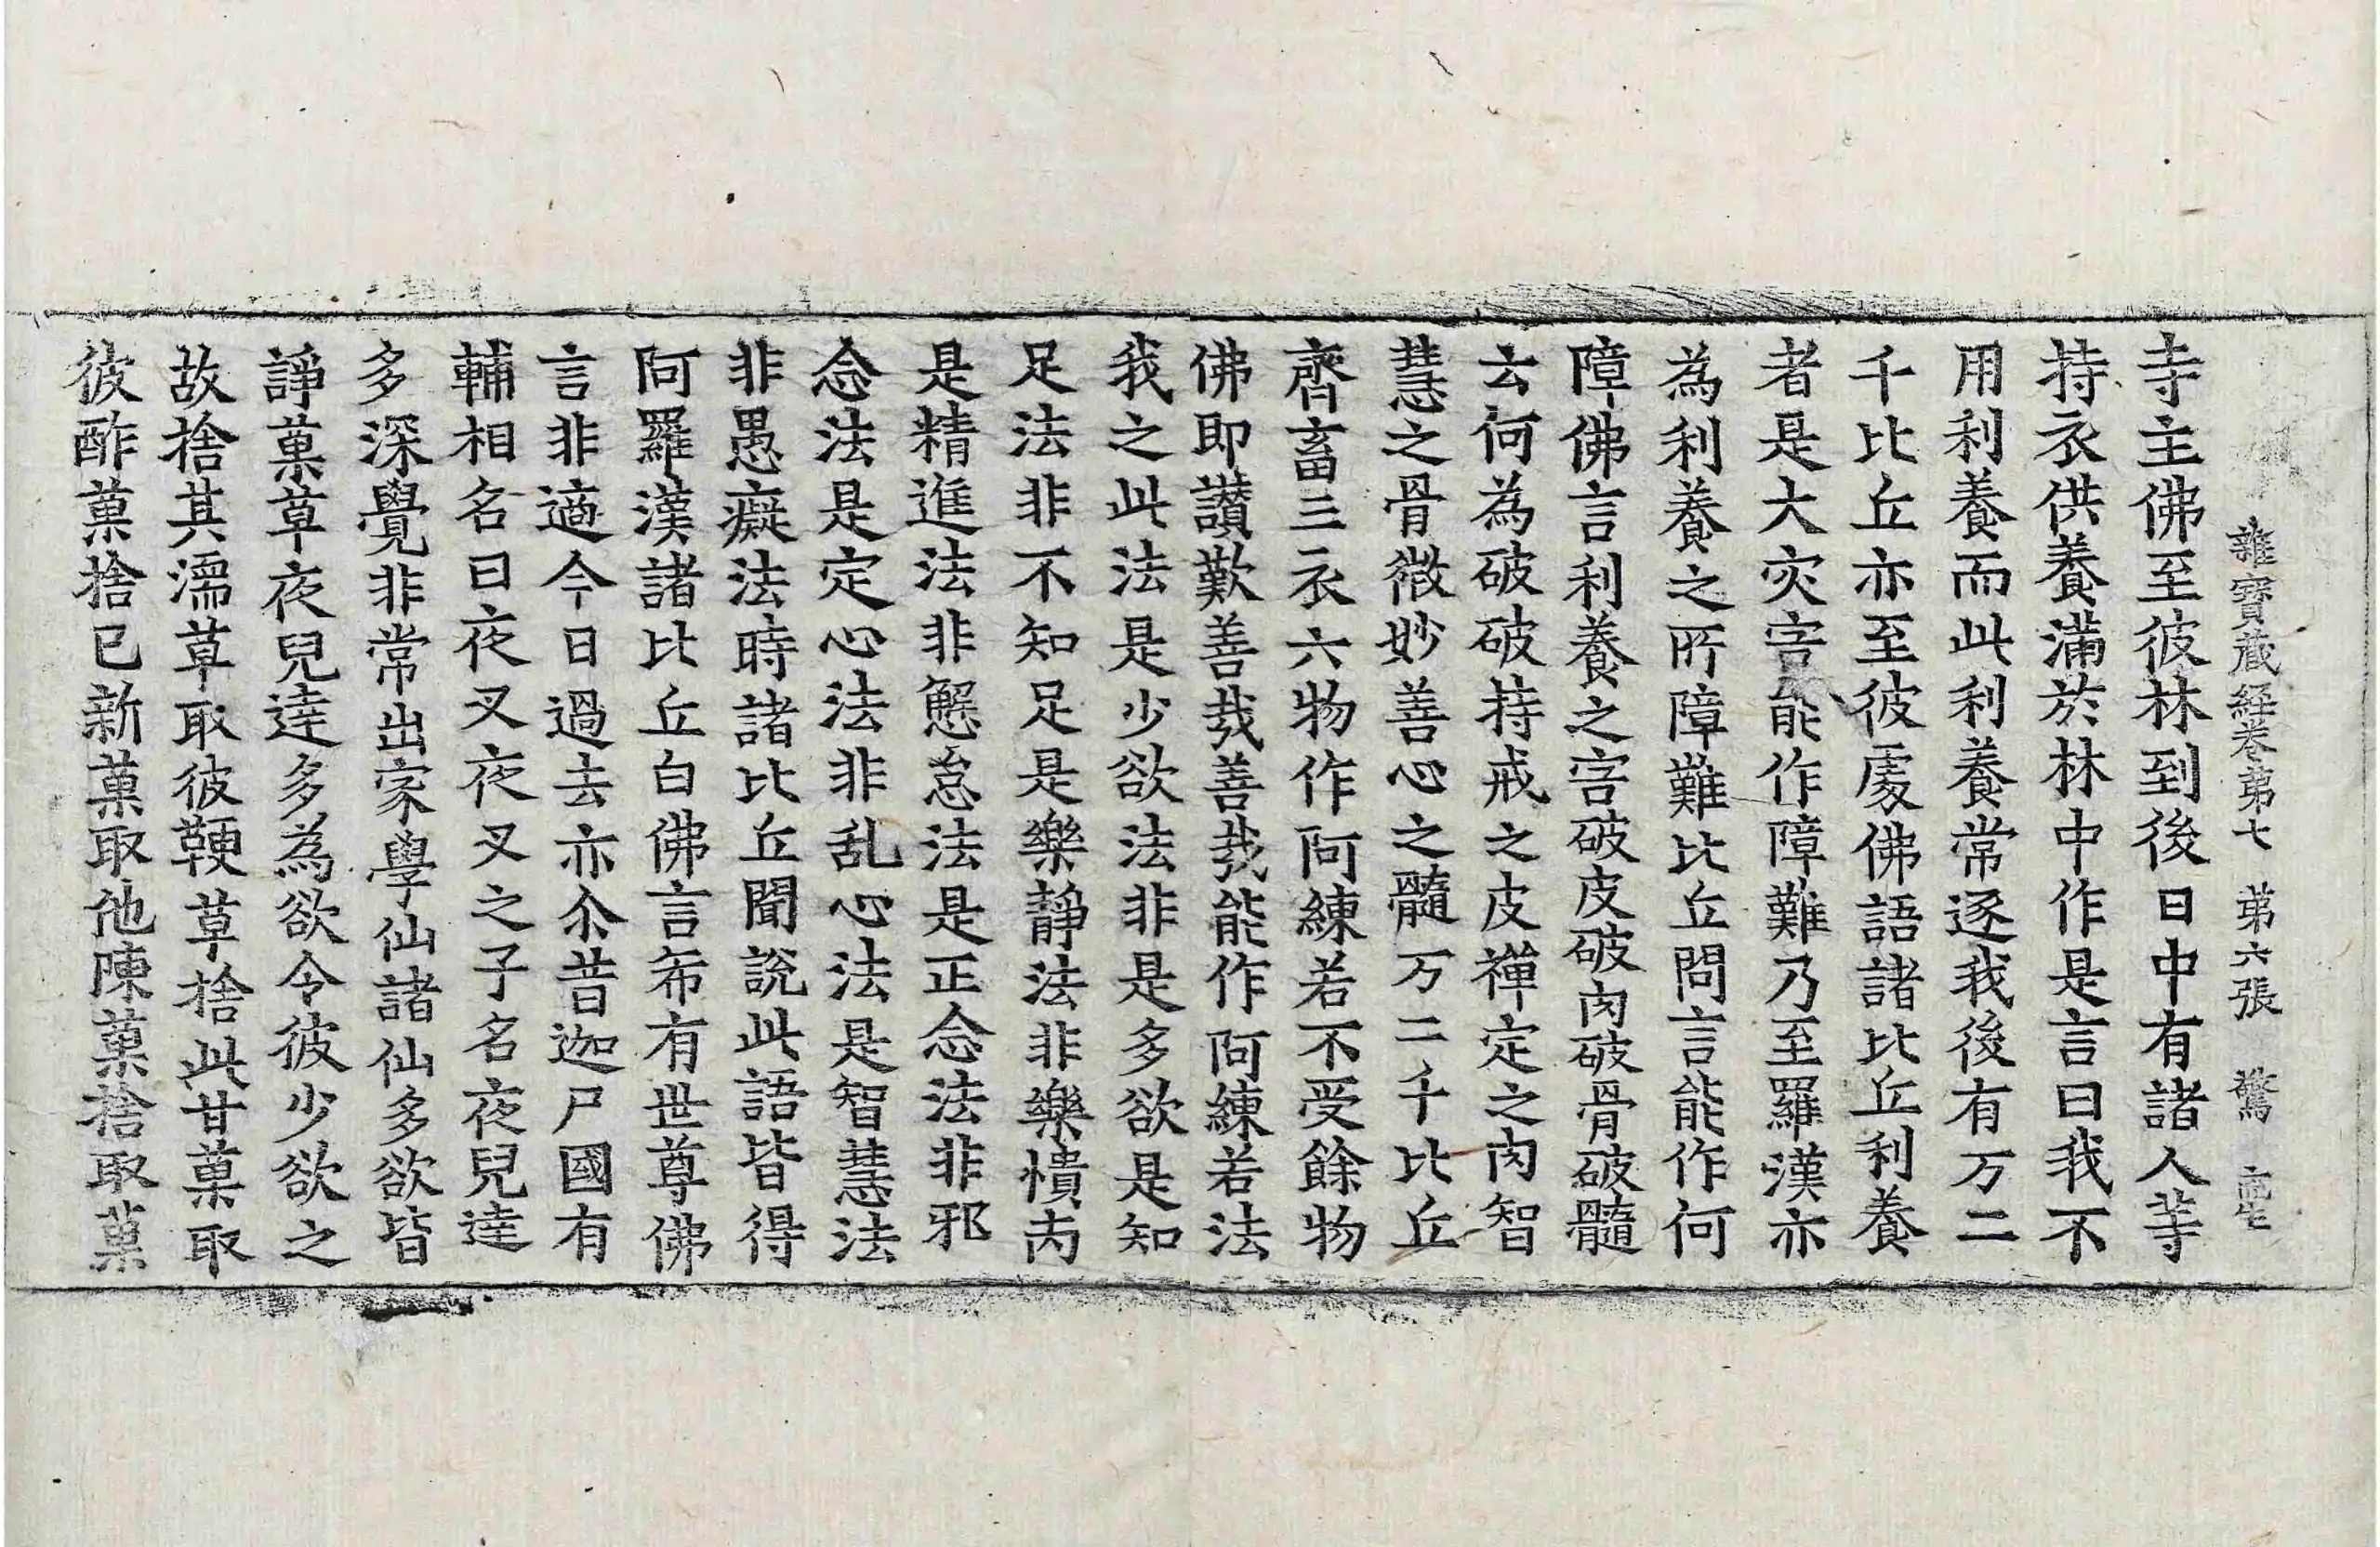 雜寶藏經卷第七 第六張 驚
寺主佛至彼林到後日中有諸人等
持衣供養滿於林中作是言曰我不
用利養而此利養常逐我後有万二
千比丘亦至彼處佛語諸比丘利養
者是大灾害能作障難乃至羅漢亦
為利養之所障難比丘問言能作何
障佛言利養之害破皮破肉破骨破髓
云何為破破持戒之皮禪定之肉智
慧之骨微妙善心之髓万二千比丘
齊畜三衣六物作阿練若不受餘物
佛即讃歎善哉善哉能作阿練若法
我之此法是少欲法非是多欲是知
足法非不知足是樂靜法非樂憒丙
是精進法非懈怠法是正念法非邪
念法是定心法非乱心法是智慧法
非愚癡法時諸比丘聞說此語皆得
阿羅漢諸比丘白佛言希有世尊佛
言非適今日過去亦尒昔迦尸國有
輔相名曰夜叉夜叉之子名夜兒達
多深覺非常出家學仙諸仙多欲皆
諍菓草夜兒達多為欲令彼少欲之
故捨其濡草取彼鞕草捨此甘菓取
彼酢菓捨已新菓取他陳菓捨取菓